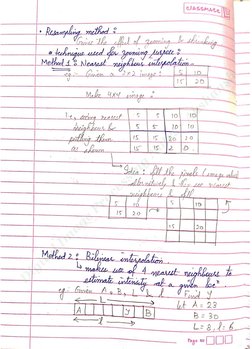 classmate
• Resampling method :
Gives the effect of zooming & shrinking
* technique used for zooming purpose :
Method 1 : Nearest neighbour interpolation.
eg:- Given a 2x2 image : 5 10
15 20
Make 4x4 image :
using nearest 5 5 10 10
neighbours by 5 5 10 10
putting them 15 15 20 20
as shown 15 15 20
Idea : fill the pixels
alternatively & then use nearest
neighbours to fill
5 10 5 10
15 20
15 20
Method 2 : Bilinear interpolation.
↳ makes use of 4 nearest neighbours to
estimate intensity at a given locn.
eg:- Given A, B, L & l Find Y
L let A = 23
A Y B B = 30
l L = 8, l = 6
Page